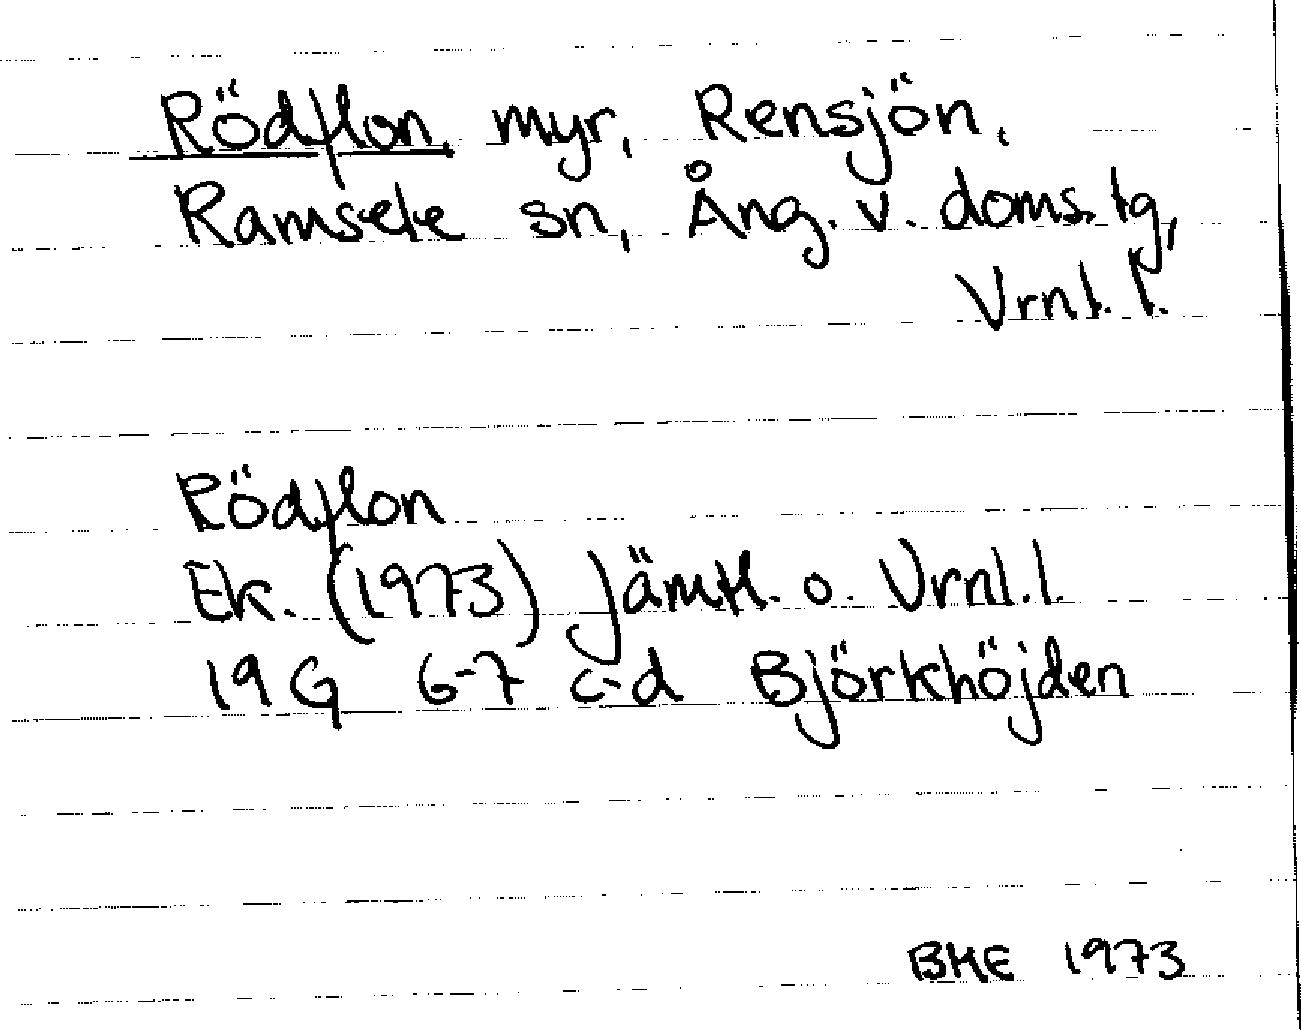 Rödflon, myr, Rensjön,
Ramsele sn, Ång. v. doms. tg,
Vrnl. l.
Rödflon
Ek. (1973) Jämtl. o. Vrnl. l.
19 G 6-7 c-d Björkhöjden
BME 1973